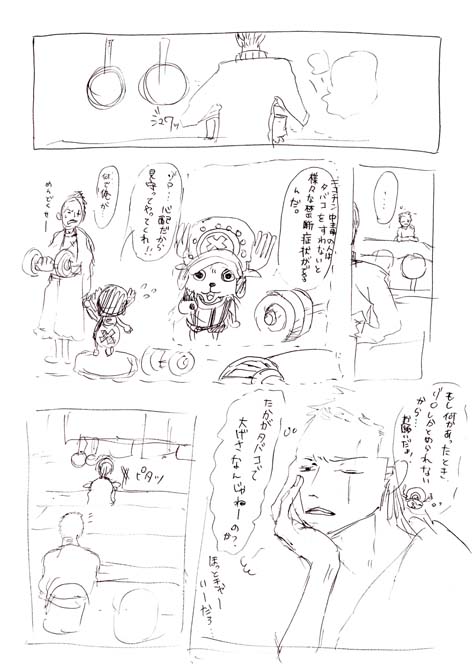 ジュワッ
・・・
ニコチン中毒の人は
タバコをすわないと
様々な禁断症状がでる
んだ。
ゾロ・・心配だから
見守ってやってくれ!!
何で俺が
めんどくせー
もし何かあったとき
ゾロしかとめられない
から・・・
お願いだよ
たかがタバコで
大げさなんじゃねーのか?
ほっときゃー
いーだろ・・
ピタッ